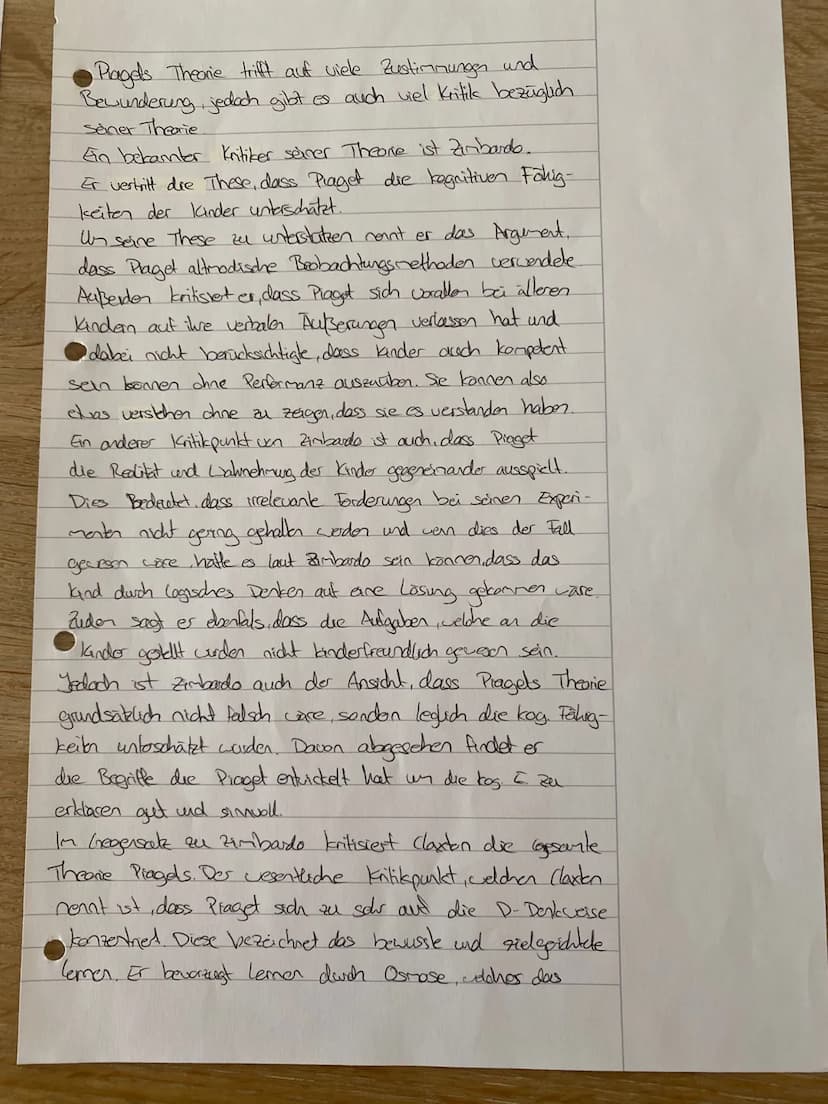 Piagets Theorie trifft auf viele Zustimmungen und
Bewunderung, jedoch gibt es auch viel Kritik bezüglich
seiner Theorie
Ein bekannter Kritiker seiner Theorie ist Zimbardo.
Er vertritt die These, dass Piaget die kognitiven Fähig-
keiten der Kinder unterschätzt.
Um seine These zu unterstützen nennt er das Argument,
dass Piaget altmodische Beobachtungsmethoden verwendete
Außerdem kritisiert er, dass Piaget sich vorallem bei älteren
Kindern auf ihre verbalen Äußerungen verlassen hat und
dabei nicht berücksichtigte, dass Kinder auch kompetent
sein können ohne Performanz auszuüben. Sie können also
etwas verstehen ohne zu zeigen, dass sie es verstanden haben.
Ein anderer Kritikpunkt von Zimbardo ist auch, dass Piaget
die Realität und Wahrnehmung der Kinder gegeneinander ausspielt.
Dies Bedeutet, dass irrelevante Forderungen bei seinen Experi-
menten nicht gering gehalten werden und wenn dies der Fall
gewesen wäre, hätte es laut Zimbardo sein können, dass das
Kind durch logisches Denken auf eine Lösung gekommen wäre.
Zudem sagt er ebenfals, dass die Aufgaben, welche an die
Kinder gestellt wurden nicht kinderfreundlich gewesen sein.
Jedoch ist Zimbardo auch der Ansicht, dass Piagets Theorie
grundsätzlich nicht falsch wäre, sondern leglich die kog. Fähig-
keiten unterschätzt wurden. Davon abgesehen findet er
die Begriffe die Piaget entwickelt hat um die kog. E zu
erklären gut und sinnvoll.
Im Gegensatz zu Zimbardo kritisiert Claxton die gesamte
Theorie Piagets. Der wesentliche Kritikpunkt, welchen Claxton
nennt ist, dass Piaget sich zu sehr auf die D-Denkweise
konzentriert. Diese bezeichnet das bewusste und zielgerichtete
lernen. Er bevorzugt lernen durch Osmose, welches das